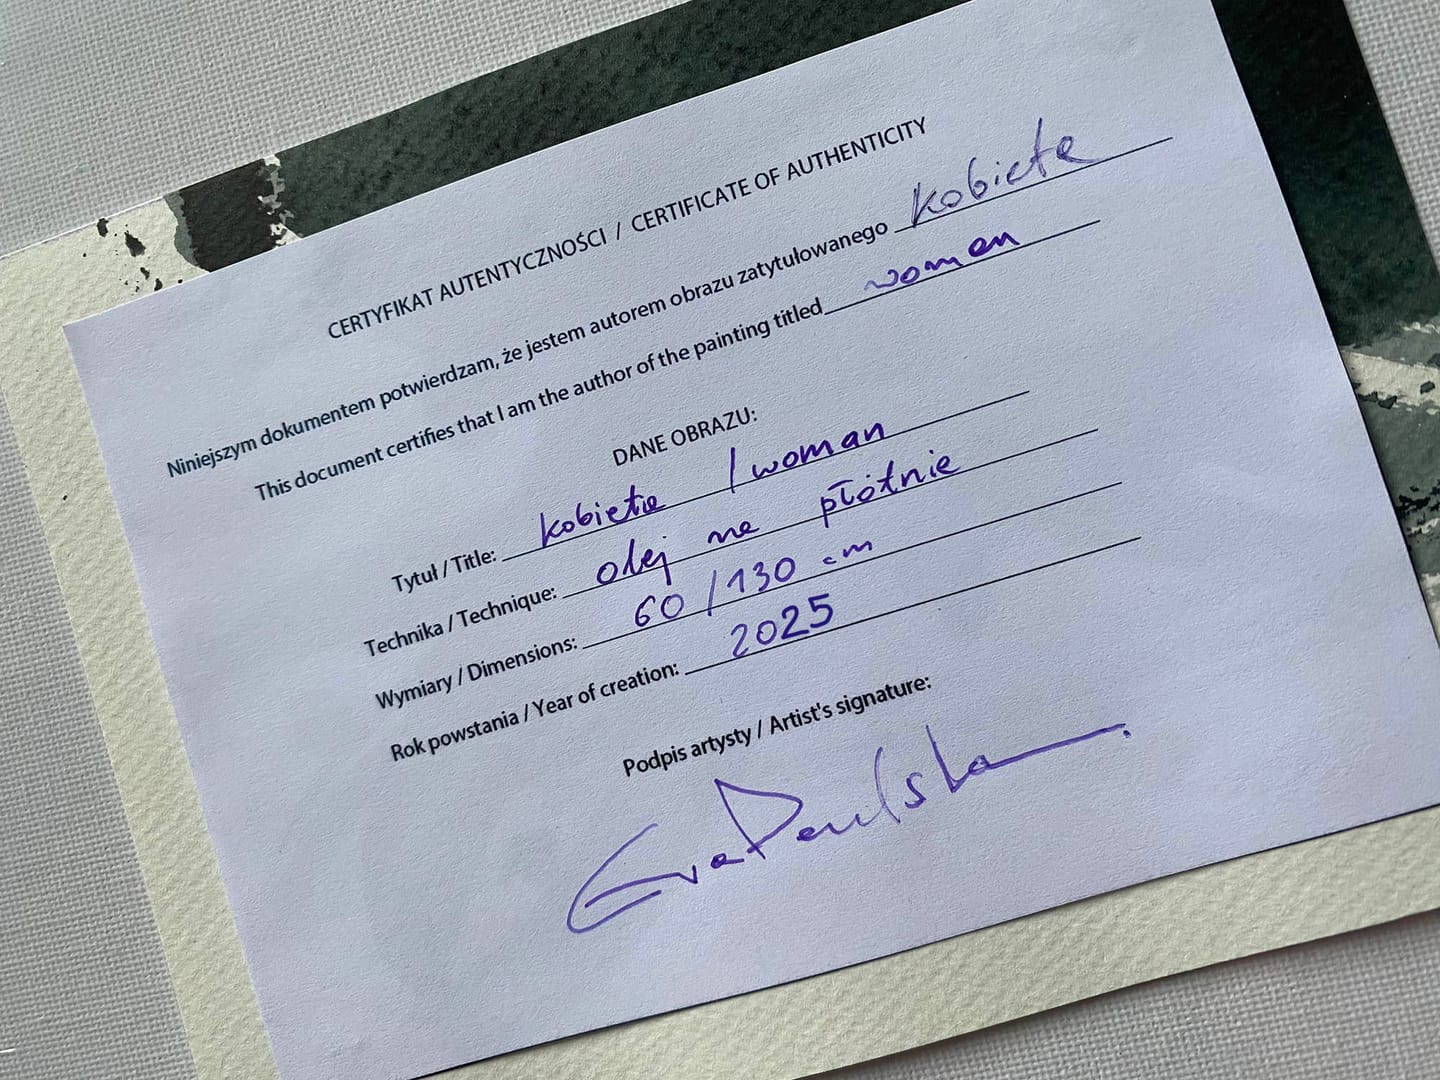 CERTYFIKAT AUTENTYCZNOŚCI / CERTIFICATE OF AUTHENTICITY
Niniejszym dokumentem potwierdzam, że jestem autorem obrazu zatytułowanego kobieta
This document certifies that I am the author of the painting titled woman
DANE OBRAZU:
Tytuł / Title: kobieta / woman
Technika / Technique: olej na płótnie
Wymiary / Dimensions: 60 / 130 cm
Rok powstania / Year of creation: 2025
Podpis artysty / Artist's signature:
Eva